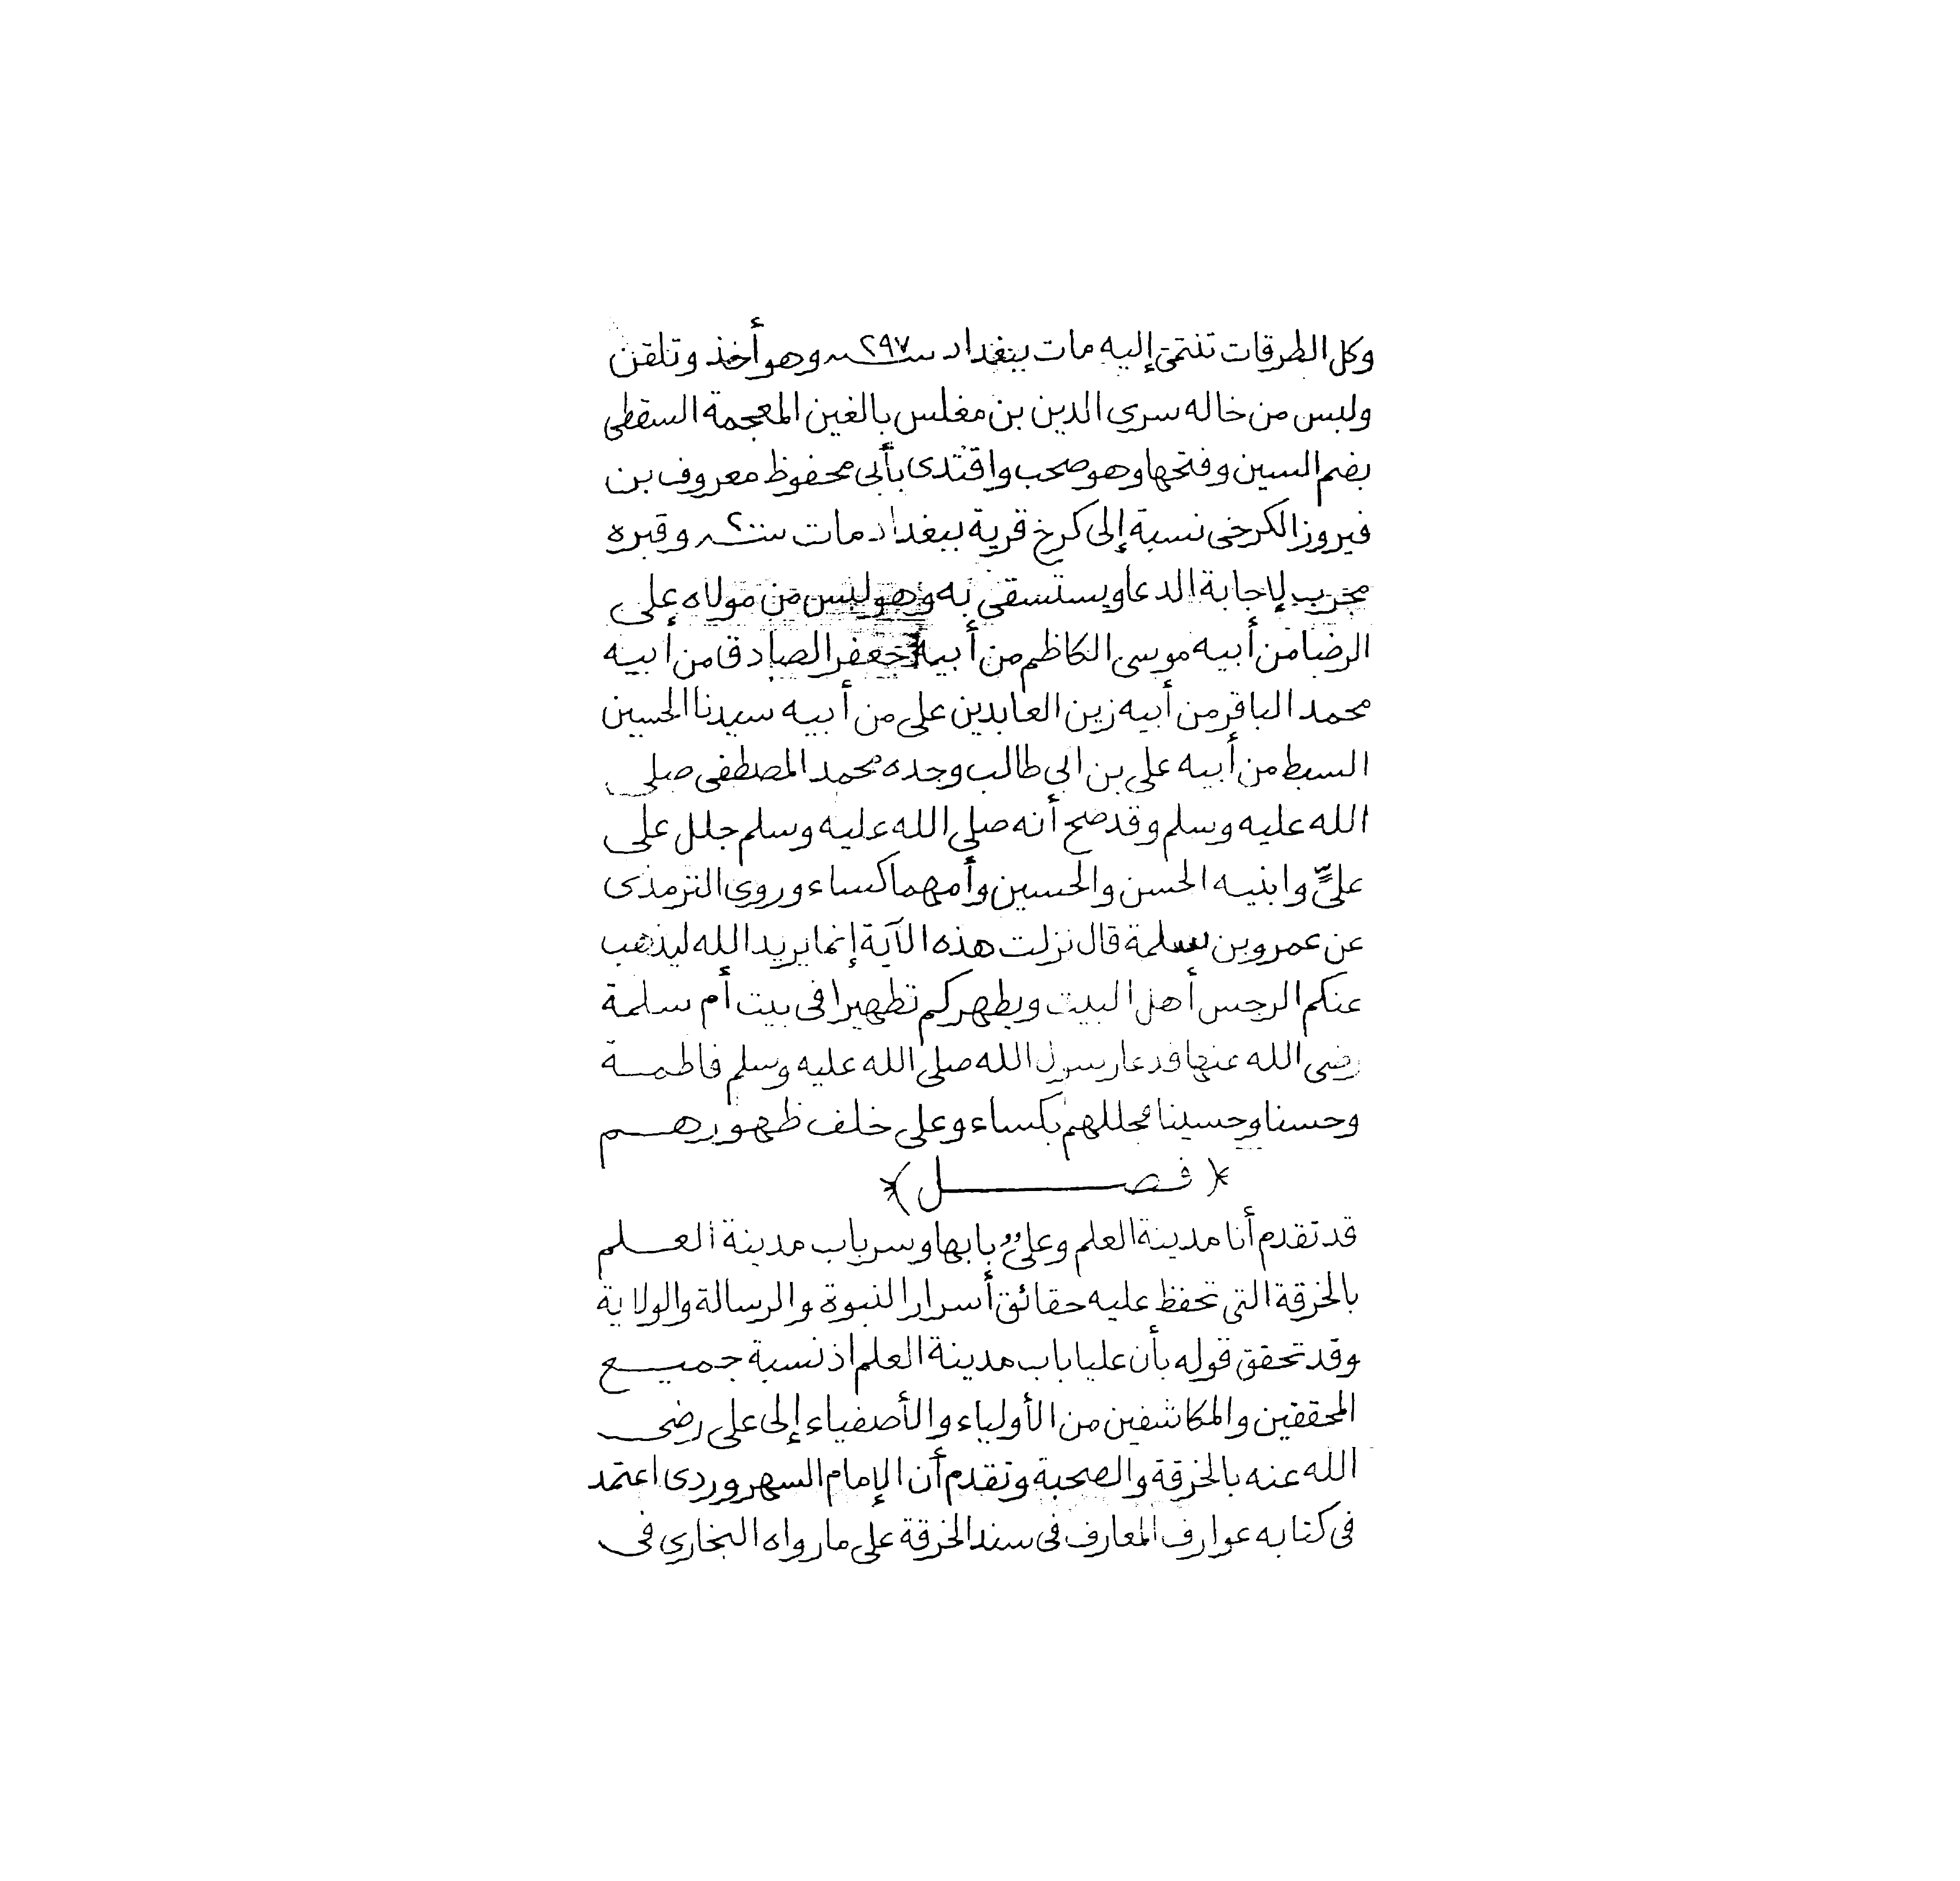 وكل الطرقات تنتمى إليه مات ببغداد سنة ٢٩٧ وهو أخذ وتلقن
ولبس من خاله سرى الدين بن مغلس بالغين المعجمة السقطى
بضم السين وفتحها وهو صحب واقتدى بأبى محفوظ معروف بن
فيروز الكرخى نسبة إلى كرخ قرية ببغداد مات سنة وقبره
مجرب لإجابة الدعا ويستسقى به وهو لبس من مولاه على
الرضا من أبيه موسى الكاظم من أبيه جعفر الصادق من أبيه
محمد الباقر من أبيه زين العابدين على من أبيه سيدنا الحسين
السبط من أبيه على بن ابى طالب وجده محمد المصطفى صلى
الله عليه وسلم وقد صح أنه صلى الله عليه وسلم جلل على
علىٍّ وابنيه الحسن والحسين وأمهما كساء وروى الترمذى
عن عمرو بن سلمة قال نزلت هذه الآية إنما يريد الله ليذهب
عنكم الرجس أهل البيت ويطهركم تطهيرا فى بيت أم سلمة
رضى الله عنها فدعا رسول الله صلى الله عليه وسلم فاطمة
وحسنا وحسينا فجللهم بكساء وعلى خلف ظهورهم
﴿فصل﴾
قد تقدم أنا مدينة العلم وعلىٌّ بابها وسر باب مدينة العلم
بالخرقة التى تحفظ عليه حقائق أسرار النبوة والرسالة والولاية
وقد تحقق قوله بأن عليا باب مدينة العلم اذ نسبة جميع
المحققين والمكاشفين من الأولياء والأصفياء إلى على رضى
الله عنه بالخرقة والصحبة وتقدم أن الإمام السهروردى اعتمد
فى كتابه عوارف المعارف فى سند الخرقة على ما رواه البخارى فى